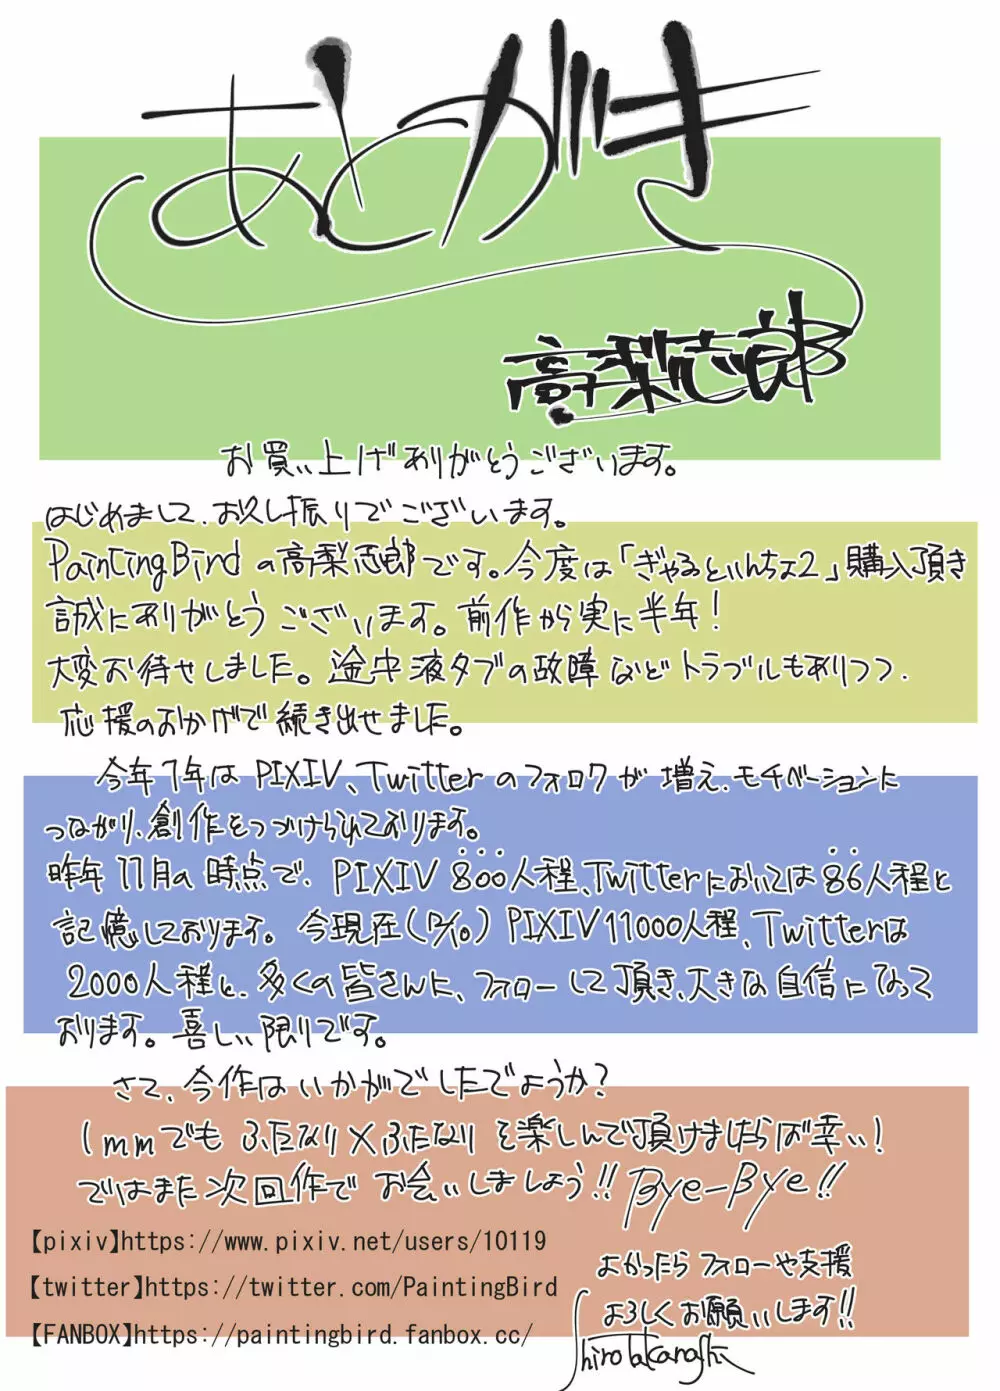 あとがき
高梨志郎
お買い上げありがとうございます。
はじめまして、お久し振りでございます。
PaintingBirdの高梨志郎です。今度は「ぎゃるといんちょ2」購入頂き
誠にありがとうございます。前作から実に半年！
大変お待せしました。途中液タブの故障などトラブルもありつつ、
応援のおかげで続き出せました。
今年1年はPIXIV、Twitterのフォロワが増え、モチベーションに
つながり、創作をつづけられております。
昨年11月の時点で、PIXIV 800人程、Twitterにおいては86人程と
記憶しております。今現在(12/10)PIXIV11000人程、Twitterは
2000人程と、多くの皆さんに、フォローして頂き、大きな自信になって
おります。喜しい限りです。
さて、今作はいかがでしたでようか？
1mmでもふたなり×ふたなりを楽しんで頂けましたらば幸い！
ではまた次回作でお会いしましょう!! Bye-Bye!!
【pixiv】https://www.pixiv.net/users/10119
【twitter】https://twitter.com/PaintingBird
【FANBOX】https://paintingbird.fanbox.cc/
よかったらフォローや支援
よろしくお願いします!!
Shiro Takanashi